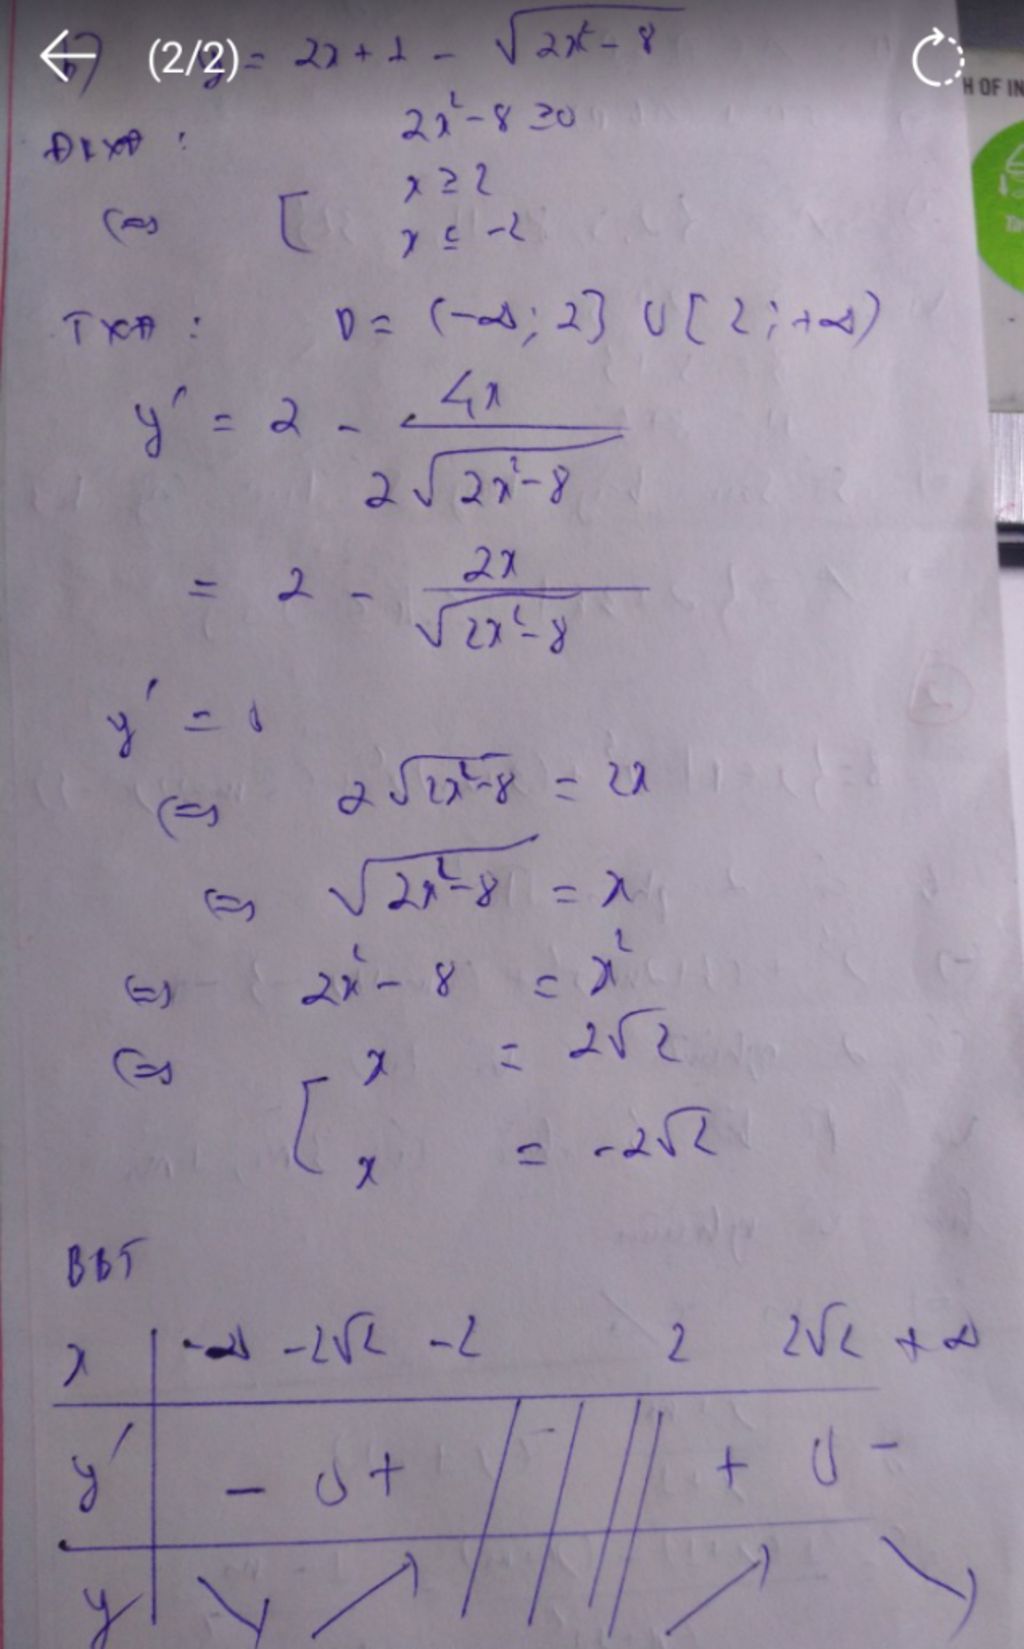 b) y = 2x + 1 - √(2x² - 8)
(2/2)
H OF IN
ĐKXĐ : 2x² - 8 ≥ 0
<=> [ x ≥ 2
x ≤ -2
TXĐ : D = (-∞; 2] ∪ [2; +∞)
y' = 2 - 4x / 2√(2x² - 8)
= 2 - 2x / √(2x² - 8)
y' = 0
<=> 2√(2x² - 8) = 2x
<=> √(2x² - 8) = x
<=> 2x² - 8 = x²
<=> [ x = 2√2
x = -2√2
BBT
x | -∞ -2√2 -2 2 2√2 +∞
y' | - 0 + + 0 -
y